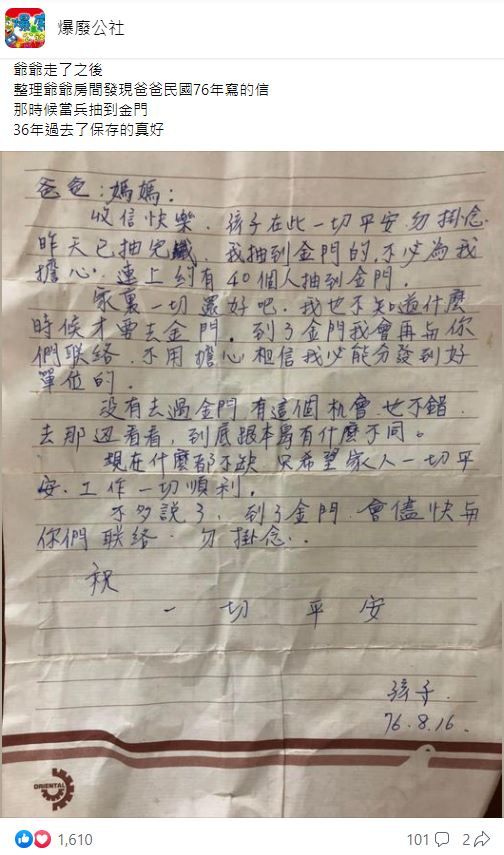 爆廢公社
爺爺走了之後
整理爺爺房間發現爸爸民國76年寫的信
那時候當兵抽到金門
36年過去了保存的真好
爸爸:媽媽:
收信快樂.孩子在此一切平安.勿掛念.
昨天已抽完籤.我抽到金門的.不必為我
擔心.連上約有40個人抽到金門.
家裏一切還好吧.我也不知道什麼
時候才要去金門.到了金門我會再与你
們联络.不用擔心相信我必能分發到好
單位的.
没有去過金門有這個机會.也不錯.
去那边看看,到底跟本島有什麼不同。
現在什麼都不缺.只希望家人一切平
安.工作一切順利.
不多説了.到了金門.會儘快与
你們联络.勿掛念..
祝
一切平安
孩子.
76.8.16.
ORIENTAL
1,610
101
2